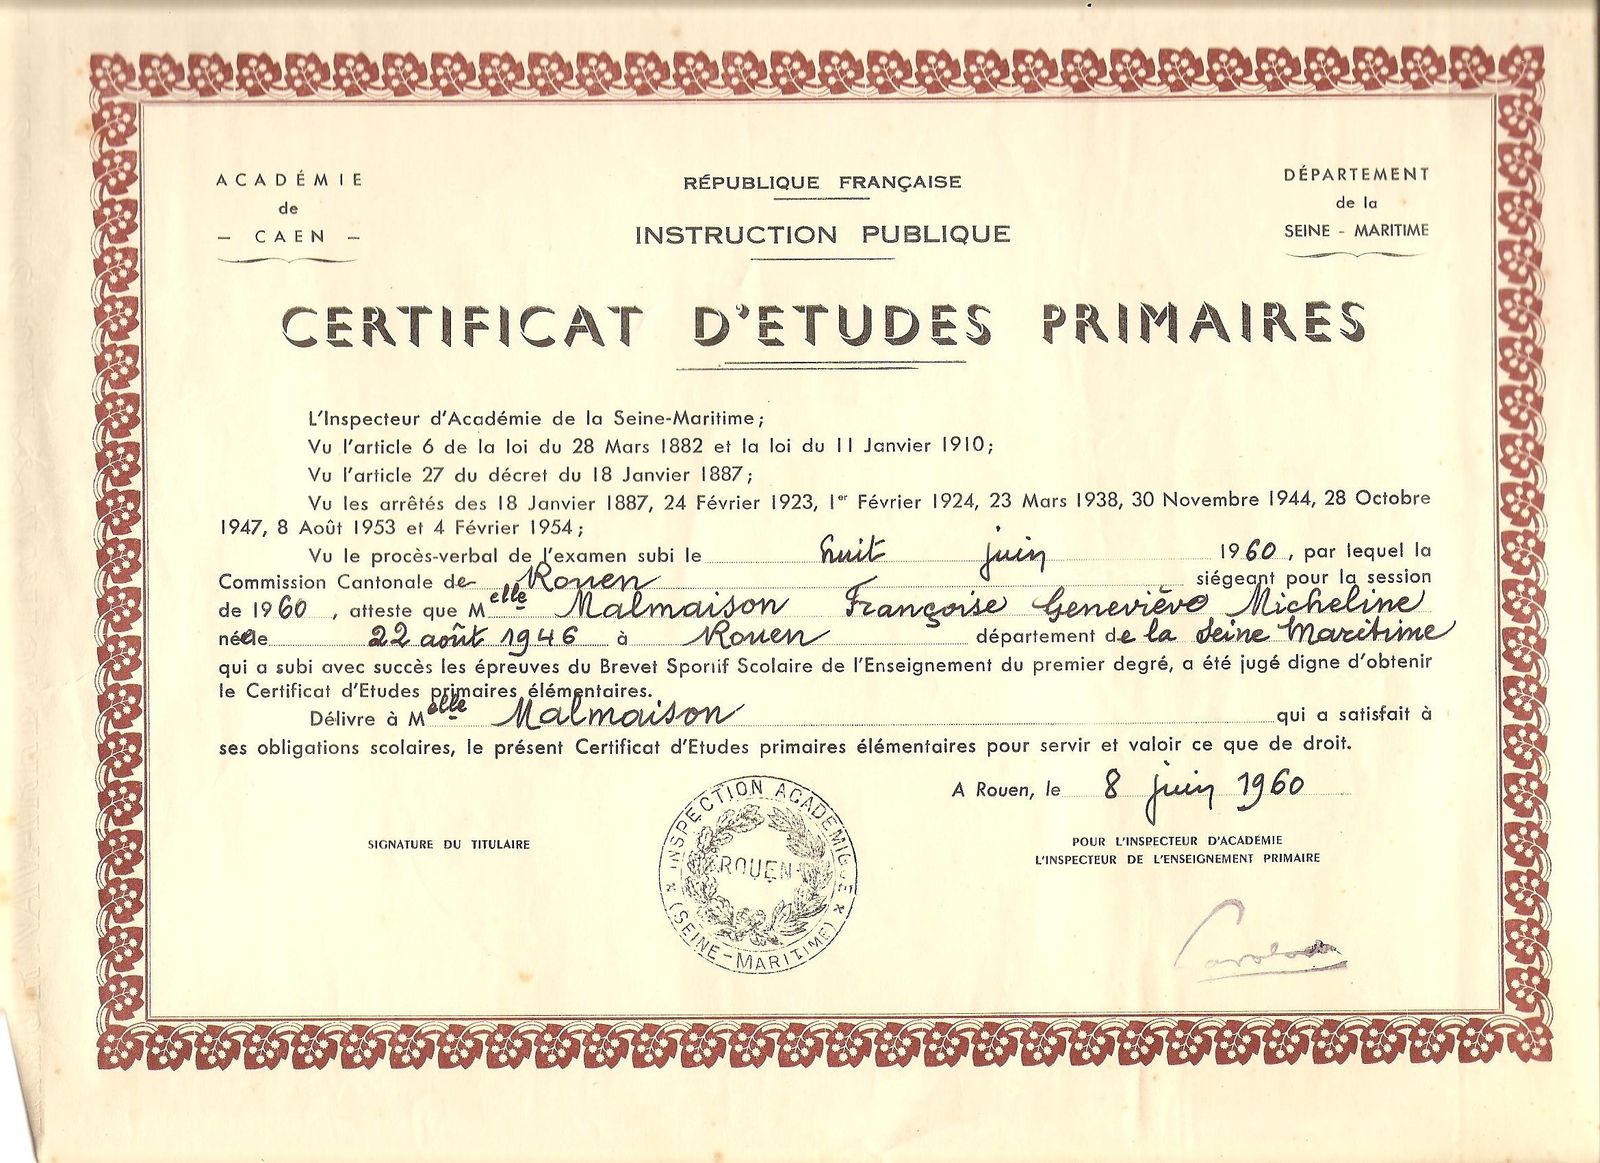 ACADÉMIE
de
– CAEN –
RÉPUBLIQUE FRANÇAISE
INSTRUCTION PUBLIQUE
DÉPARTEMENT
de la
SEINE - MARITIME
CERTIFICAT D'ETUDES PRIMAIRES
L'Inspecteur d'Académie de la Seine-Maritime;
Vu l'article 6 de la loi du 28 Mars 1882 et la loi du 11 Janvier 1910;
Vu l'article 27 du décret du 18 Janvier 1887;
Vu les arrêtés des 18 Janvier 1887, 24 Février 1923, 1er Février 1924, 23 Mars 1938, 30 Novembre 1944, 28 Octobre
1947, 8 Août 1953 et 4 Février 1954;
Vu le procès-verbal de l'examen subi le huit juin 1960, par lequel la
Commission Cantonale de Rouen siégeant pour la session
de 1960, atteste que Melle Malmaison Françoise Geneviève Micheline
née le 22 août 1946 à Rouen département de la Seine Maritime
qui a subi avec succès les épreuves du Brevet Sportif Scolaire de l'Enseignement du premier degré, a été jugé digne d'obtenir
le Certificat d'Etudes primaires élémentaires.
Délivre à Melle Malmaison qui a satisfait à
ses obligations scolaires, le présent Certificat d'Etudes primaires élémentaires pour servir et valoir ce que de droit.
A Rouen, le 8 juin 1960
SIGNATURE DU TITULAIRE
INSPECTION ACADÉMIQUE
ROUEN
(SEINE-MARITIME)
POUR L'INSPECTEUR D'ACADÉMIE
L'INSPECTEUR DE L'ENSEIGNEMENT PRIMAIRE